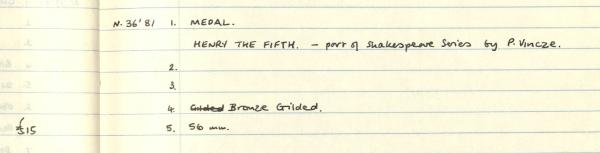 N. 36'81 1. MEDAL.
HENRY THE FIFTH. – part of Shakespeare Series by P. Vincze.
2.
3.
4. Gilded Bronze Gilded.
£15 5. 56 mm.